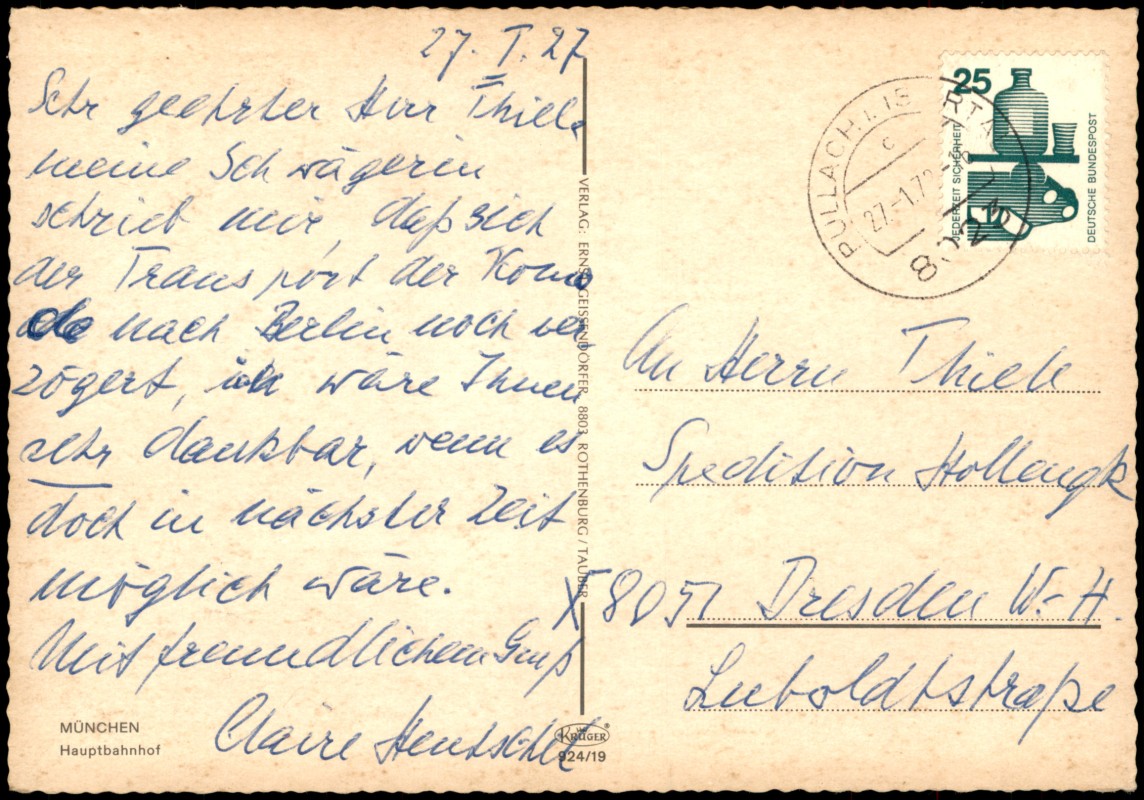 27. I. 27
Sehr geehrter Herr Thiele
meine Schwägerin
schrieb mir, daß sich
der Transport der Komo
de nach Berlin noch ver
zögert, ich wäre Ihnen
sehr dankbar, wenn es
doch in nächster Zeit
möglich wäre.
Mit freundlichem Gruß
Claire Hentschel
MÜNCHEN
Hauptbahnhof
VERLAG: ERNST GEISSENDÖRFER, 8803 ROTHENBURG / TAUBER
KRÜGER
924/19
25
JEDERZEIT SICHERHEIT
DEUTSCHE BUNDESPOST
PULLACH I. ISARTAL
c
27.-1.72
8
An Herrn Thiele
Spedition Hollengk
X 8051 Dresden W.-H.
Luboldtstraße